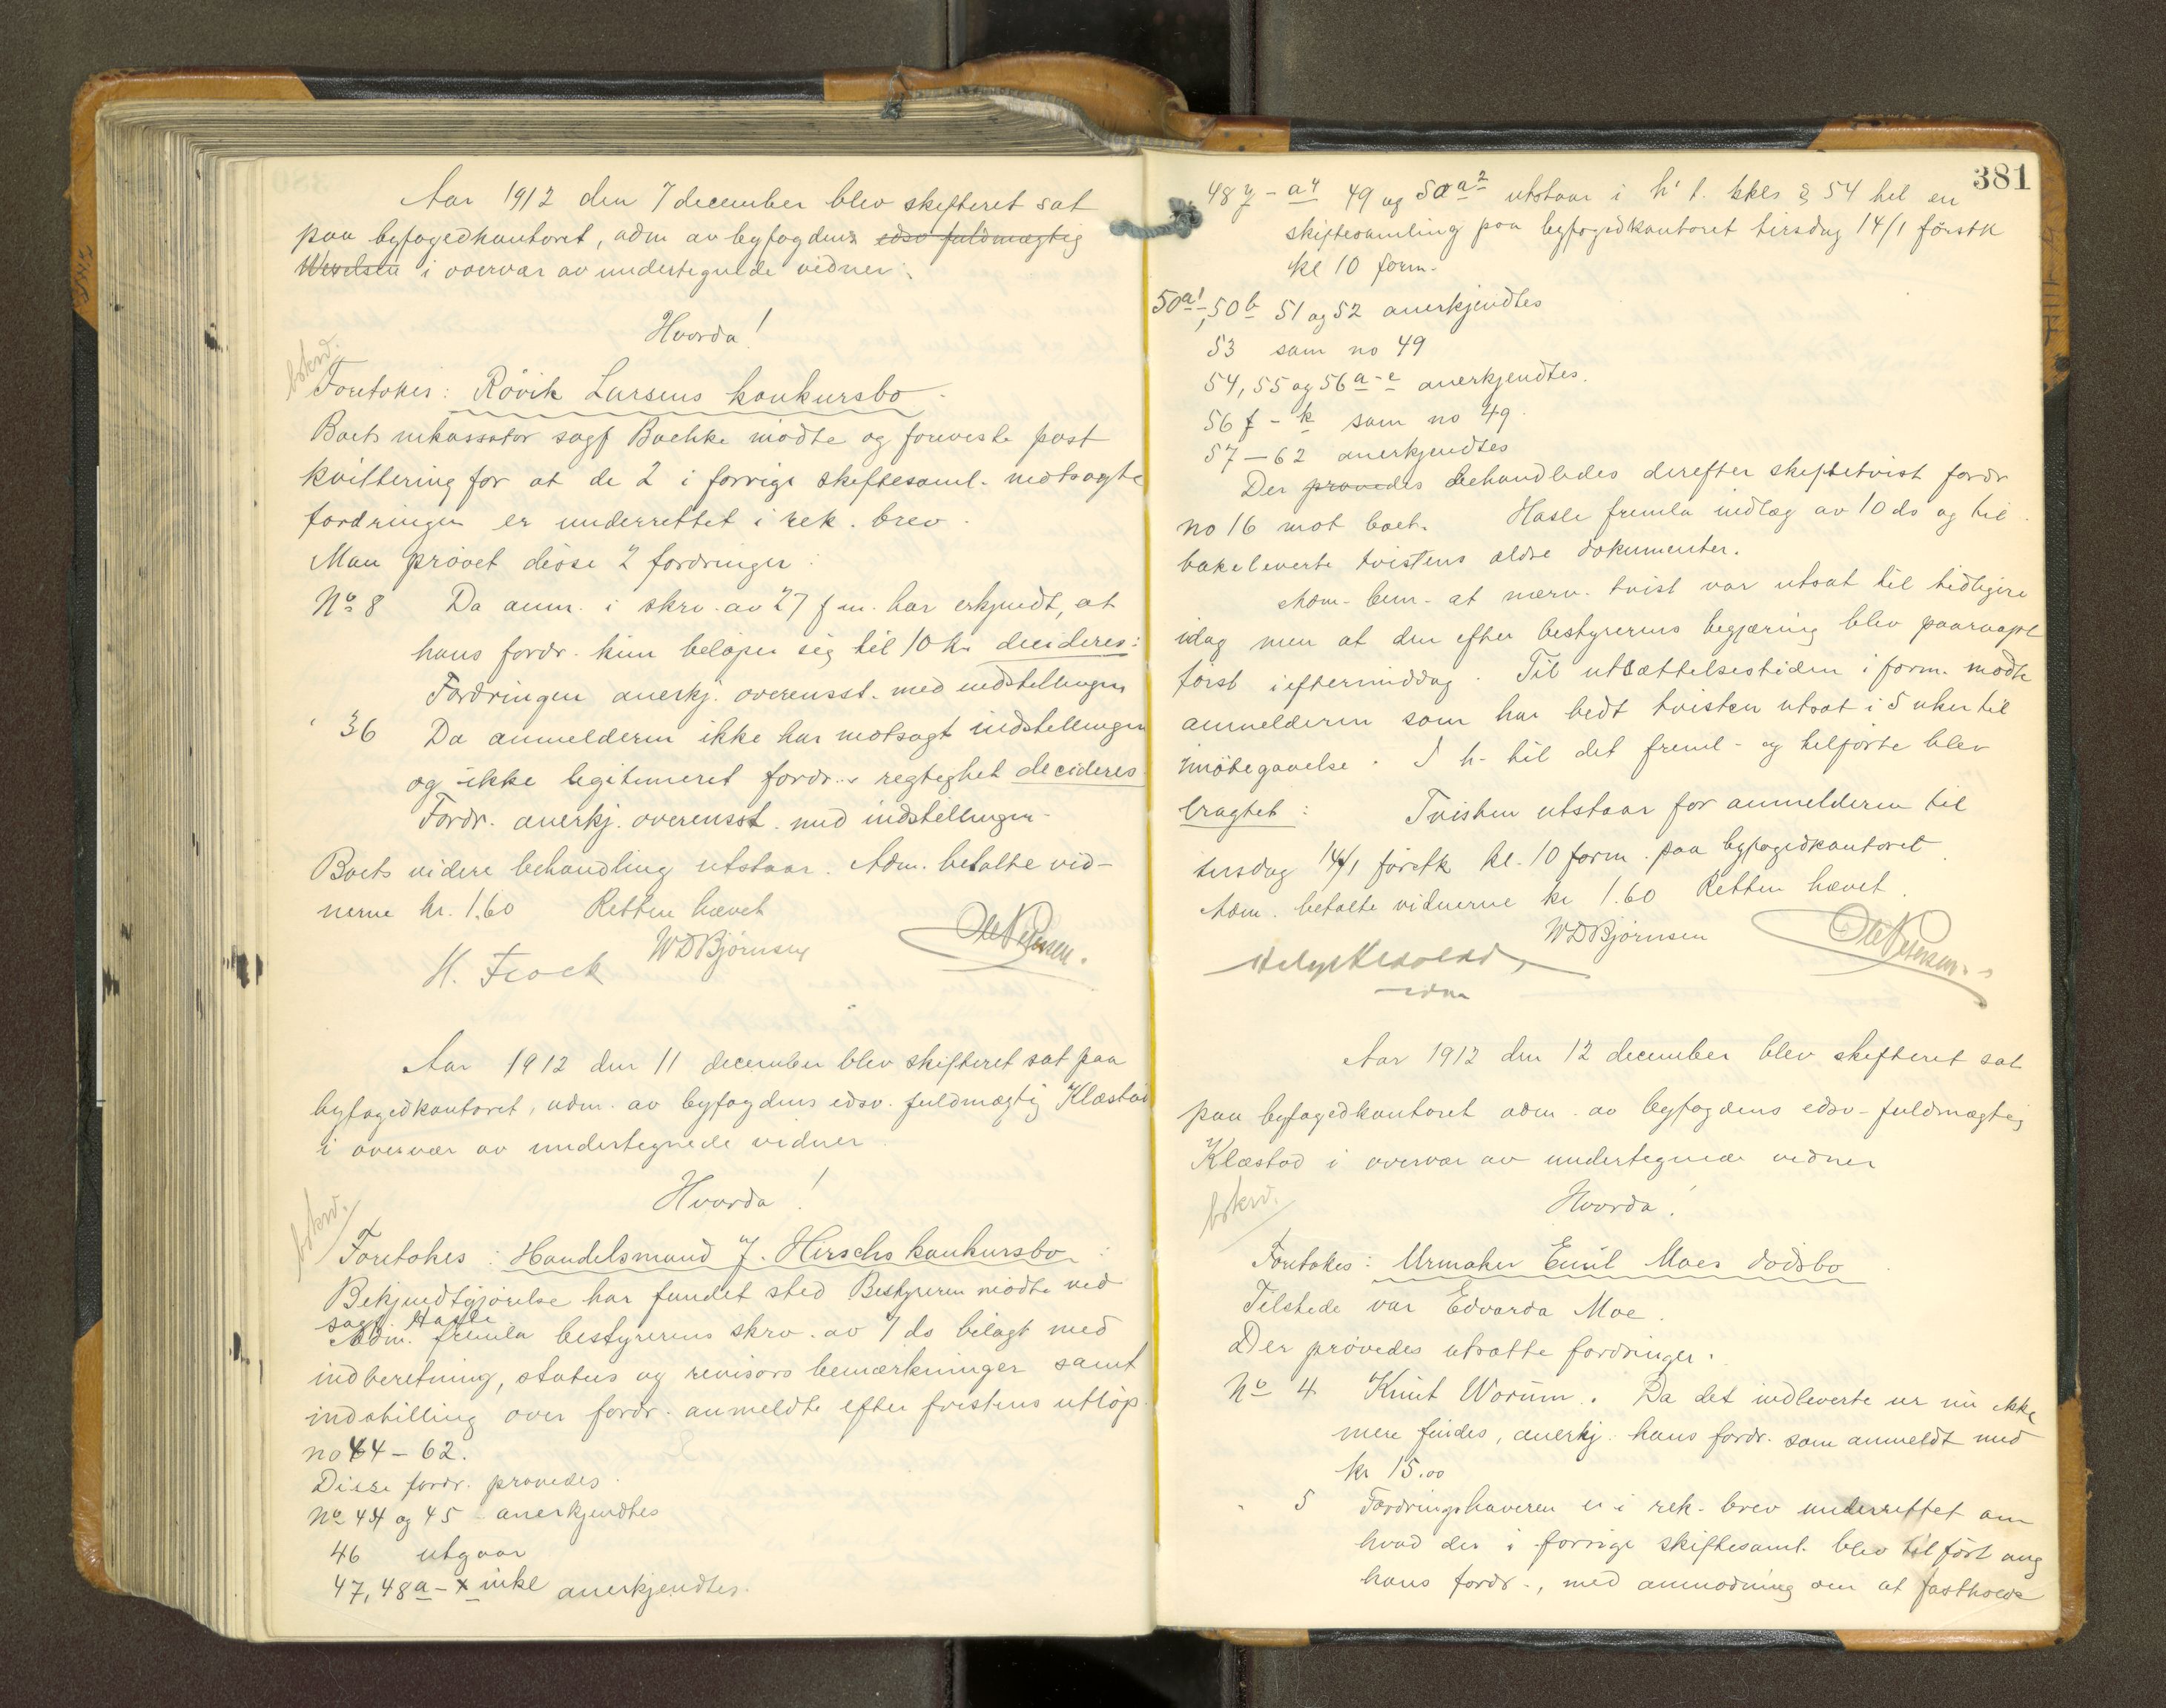 Aar 1912 den 7 december blev skifteret sat
paa byfogedkontoret, adm av byfogdens edsv fuldmægtig
i overvær av undertegnede vidner.
Hvorda!
bskrd.
Foretokes: Rövik Larsens konkursbo.
Boets inkassator sagf Baehke mödte og foreviste post
kvittering for at de 2 i forrige skiftesaml. motsagte
fordringer er underrettet i rek. brev.
Man prövet disse 2 fordringer:
No 8 Da anm. i skrv. av 27 f m. har erkjendt, at
hans fordr. kun belöper sig til 10 kr decideres:
Fordringen anerkj. overensst. med indstillingen
" 36 Da anmelderen ikke har motsagt indstillingen
og ikke legitimeret fordr.s regtighet decideres
Fordr. anerkj. overensst. med indstillingen.
Boets videre behandling utstaar. Adm. betalte vid-
nerne kr. 1.60 Retten hævet
H. Frock WDBjørnsen Ole Petersen.
Aar 1912 den 11 december blev skifteret sat paa
byfogedkontoret, adm. av byfogdens edsv. fuldmægtig Klæstad
i overvær av undertegnede vidner.
Hvorda!
bskrd.
Foretokes: Handelsmand J. Hirschs konkursbo:
Bekjendtgjörelse har fundet sted Bestyreren mödte ved
sagf. Hasle
Adm. fremla bestyrerens skrv. av 7 ds bilagt med
indberetning, status og revisors bemærkninger samt
indstilling over fordr. anmeldte efter fristens utlöp.
no 44 - 62.
Disse fordr. prövedes.
No 44 og 45 anerkjendtes
46 utgaar
47, 48 a - x inkl anerkjendtes.
381
48 y - a4 49 og 50 a2 utstaar i h' t. kkls § 54 til en
skiftesamling paa byfogedkontoret tirsdag 14/1 förstk
kl 10 form.
50 a1, 50 b 51 og 52 anerkjendtes
53 som no 49
54, 55 og 56 a - e anerkjendtes.
56 f - k som no 49
57 - 62 anerkjendtes
Der prövedes behandledes derefter skiftetvist fordr
no 16 mot boet. Hasle fremla indlæg av 10 ds og til
bakeleverte tvistens ældre dokumenter.
Adm. bem. at nærv. tvist var utsat til tidligere
idag men at den efter bestyrerens begjæring blev paaraapt
först i eftermiddag. Til utsættelsestiden i form. mödte
anmelderen som har bedt tvisten utsat i 5 uker til
imötegaaelse. I h. til det freml. og tilförte blev
bragtet: Tvisten utstaar for anmelderen til
tirsdag 14/1 förstk kl. 10 form. paa byfogedkontoret.
Adm. betalte vidnerne kr 1.60 Retten hævet.
WDBjørnsen Ole Petersen.
Aar 1912 den 12 december blev skifteret sat
paa byfogedkontoret adm. av byfogdens edsv. fuldmægtig
Klæstad i overvær av undertegnede vidner
bskrd.
Hvorda!
Foretokes: Urmaker Emil Moes dödsbo.
Tilstede var Edvarda Moe.
Der prövedes utsatte fordringer.
No 4 Knut Worum. Da det indleverte ur nu ikke
mere findes, anerkj. hans fordr. som anmeldt med
kr 15.00
" 5 Fordringshaveren er i rek. brev underrettet om
hvad der i forrige skiftesaml. blev tilfört ang
hans fordr., med anmodning om at fastholde